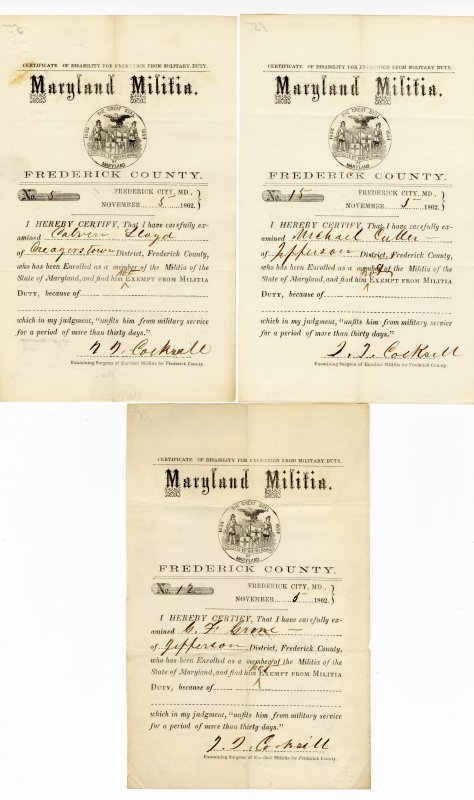 CERTIFICATE OF DISABILITY FOR EXEMPTION FROM MILITARY DUTY.
Maryland Militia.
THE GREAT SEAL
MARYLAND
FREDERICK COUNTY.
No. 5
FREDERICK CITY, MD.,
NOVEMBER 5 1862.
I HEREBY CERTIFY, That I have carefully ex-
amined Calvin Lloyd
of Creagerstown District, Frederick County,
who has been Enrolled as a member of the Militia of the
State of Maryland, and find him not EXEMPT FROM MILITIA
DUTY, because of
which in my judgment, "unfits him from military service
for a period of more than thirty days."
Cockrill
Examining Surgeon of Enrolled Militia for Frederick County.
15
CERTIFICATE OF DISABILITY FOR EXEMPTION FROM MILITARY DUTY.
Maryland Militia.
THE GREAT SEAL
MARYLAND
FREDERICK COUNTY.
No. 15
FREDERICK CITY, MD.,
NOVEMBER 5 1862.
I HEREBY CERTIFY, That I have carefully ex-
amined Michael Cutler
of Jefferson District, Frederick County,
who has been Enrolled as a member of the Militia of the
State of Maryland, and find him not EXEMPT FROM MILITIA
DUTY, because of
which in my judgment, "unfits him from military service
for a period of more than thirty days."
Cockrill
Examining Surgeon of Enrolled Militia for Frederick County.
CERTIFICATE OF DISABILITY FOR EXEMPTION FROM MILITARY DUTY.
Maryland Militia.
THE GREAT SEAL
OF
MARYLAND
FREDERICK COUNTY.
No. 12
FREDERICK CITY, MD.,
NOVEMBER 5 1862.
I HEREBY CERTIFY, That I have carefully ex-
amined C. F. Grove
of Jefferson District, Frederick County,
who has been Enrolled as a member of the Militia of the
State of Maryland, and find him not EXEMPT FROM MILITIA
DUTY, because of
which in my judgment, "unfits him from military service
for a period of more than thirty days."
Cockrill
Examining Surgeon of Enrolled Militia for Frederick County.